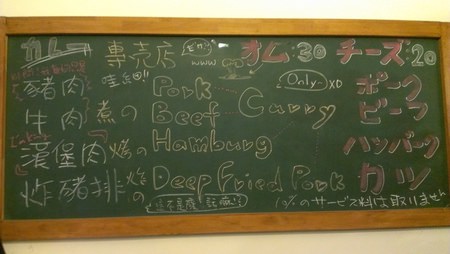 カレー 専売店 www オム:30 チーズ:20
豬肉 Pork Only XD ポーク
牛肉 煮の Beef Curry ビーフ
漢堡肉 Hamburg ハンバーグ
炸豬排 の Deep Fried Pork カツ
10%のサービス料は取りません